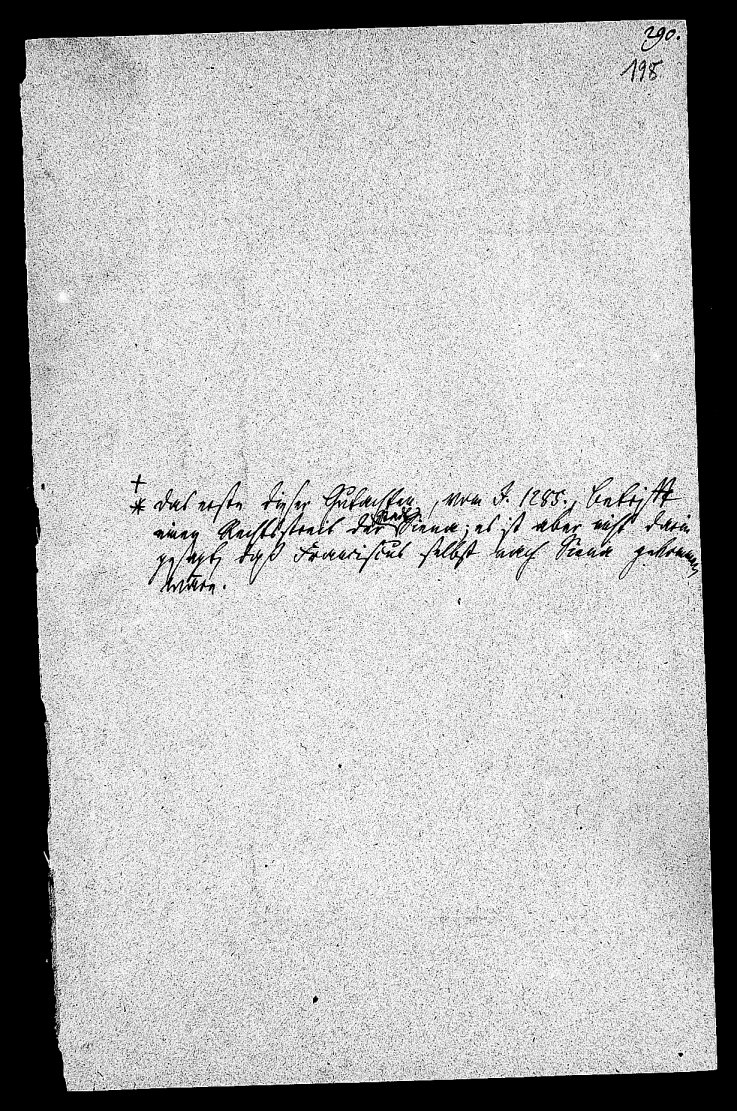 290.
198
+
* das erste dieser Gutachten, vom J. 1285., betrifft
einen Rechtsstreit der Stadt Siena; es ist aber nicht darin
gesagt, daß Franciscus selbst nach Siena gekommen
wäre.